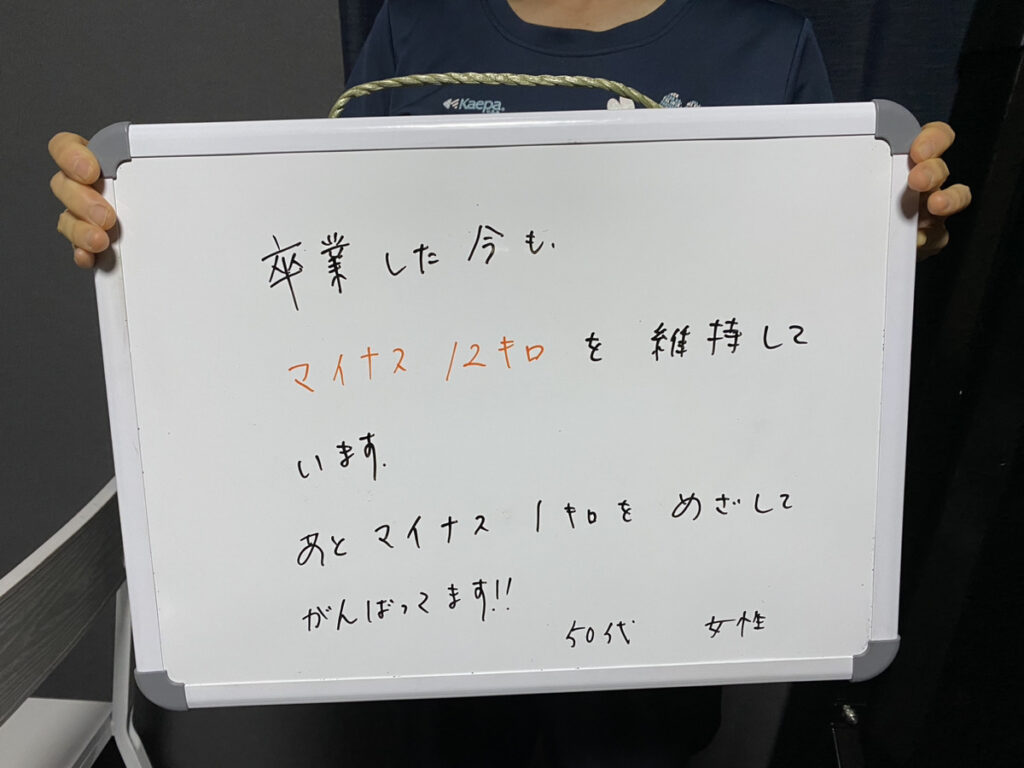 Kaepa.
卒業した今も、
マイナス12キロを維持して
います。
あとマイナス1キロをめざして
がんばってます!!
50代 女性